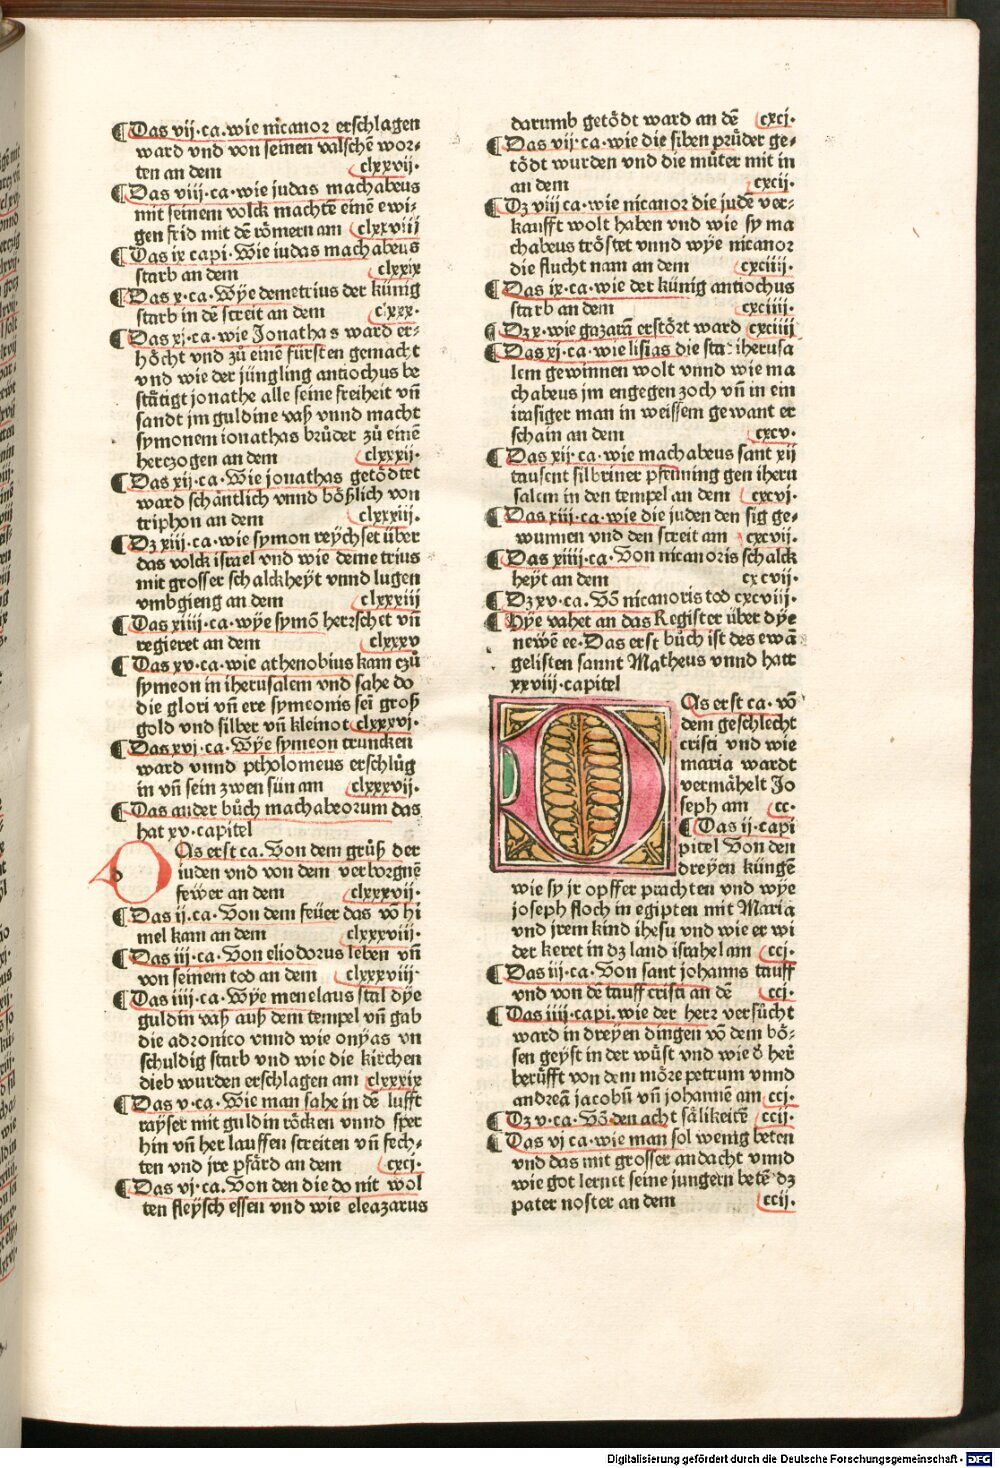 ¶Das vij·ca.wie nicanor erschlagen
ward vnd von seinen valschē wor-
ten an dem clxxvij·
¶Das viij·ca·wie judas machabeus
mit seinem volck machtē einē ewi-
gen frid mit dē römern am clxxviij
¶Das ix capi·Wie iudas machabeus
starb an dem clxxix
¶Das x·ca·Wÿe demetrius der künig
starb in dē streit an dem clxxx·
¶Das xj·ca·wie Jonathas ward er-
höcht vnd zů eine fürsten gemacht
vnd wie der jüngling antiochus be
stätigt jonathe alle seine freiheit vñ
sandt jm guldine vaß vnnd macht
symonem ionathas brůder zů einē
herczogen an dem clxxxij·
¶Das xij·ca·Wie jonathas getödtet
ward schäntlich vnnd bößlich von
triphon an dem clxxxiij·
¶Dz xiij·ca·wie symon reÿchset über
das volck israel vnd wie demetrius
mit grosser schalckheÿt vnnd lugen
vmbgieng an dem clxxxiij
¶Das xiiij·ca·wÿe symō herrschet vñ
regieret an dem clxxxv
¶Das xv·ca·wie athenobius kam czů
symeon in iherusalem vnd sahe do
die glori vñ ere symeonis sei groß
gold vnd silber vñ kleinot clxxxvj·
¶Das xvj·ca·Wÿe symeon truncken
ward vnnd ptholomeus erschlůg
in vñ sein zwen sün am clxxxvij·
¶Das ander bůch machabeorum das
hat xv·capitel
DAs erst ca.Von dem grůß der
iuden vnd von dem verborgnē
fewer an dem clxxxvij·
¶Das ij·ca·Von dem feüer das vō hi
mel kam an dem clxxxviij·
¶Das iij·ca·Von eliodorus leben vñ
von seinem tod an dem clxxxviij·
¶Das iiij·ca·Wÿe menelaus stal dÿe
guldin vaß auß dem tempel vñ gab
die adronico vnnd wie onÿas vn
schuldig starb vnd wie die kirchen
dieb wurden erschlagen am clxxxix
¶Das v·ca·Wie man sahe in dē lufft
raÿser mit guldin röcken vnnd sper
hin vñ her lauffen streiten vñ fech-
ten vnd jre pfärd an dem cxcj·
¶Das vj·ca·Von den die do nit wol
ten fleÿsch essen vnd wie eleazarus
darumb getödt ward an dē cxcj·
¶Das vij·ca·wie die siben průder ge-
tödt wurden vnd die můter mit in
an dem cxcij·
¶Dz viij ca·wie nicanor die judē ver-
kaufft wolt haben vnd wie sy ma
chabeus tröstet vnnd wÿe nicanor
die flucht nam an dem cxciij·
¶Das ix·ca·wie der künig antiochus
starb an dem cxciiij·
¶Dz x·wie gazarā erstört ward cxciiij
¶Das xj·ca·wie lisias die stat iherusa
lem gewinnen wolt vnnd wie ma
chabeus jm engegen zoch vñ in ein
irasiger man in weissem gewant er
schain an dem cxcv·
¶Das xij·ca·wie machabeus sant xij
tausent silbriner pfenning gen iheru
salem in den tempel an dem cxcvj·
¶Das xiij·ca·wie die juden den sig ge-
wunnen vnd den streit am cxcvij·
¶Das xiiij·ca·Von nicanoris schalck
heÿt an dem cxcvij·
¶Dz xv·ca·Vō nicanoris tod cxcviij·
¶Hÿe vahet an das Register über dÿe
newē ee·Das erst bůch ist des ewā
gelisten sannt Matheus vnnd hatt
xxviij·capitel
DAs erst ca·vō
dem geschlecht
cristi vnd wie
maria wardt
vermähelt Jo
seph am cc·
¶Das ij·capi
pitel Von den
dreÿen küngē
wie sy jr opffer prachten vnd wÿe
joseph floch in egipten mit Maria
vnd jrem kind ihesu vnd wie er wi
der keret in dz land israhel am ccj·
¶Das iij·ca·Von sant johanns tauff
vnd von dē tauff cristi an dē ccj·
¶Das iiij·capi.wie der herr versůcht
ward in dreÿen dingen vō dem bö-
sen geÿst in der wůst vnd wie d̕ herr
berůfft von dem möre petrum vnnd
andreā jacobū vñ johannē am ccj·
¶Dz v·ca·Vō den acht sälikeitē ccij·
¶Das vj ca·wie man sol wenig beten
vnd das mit grosser andacht vnnd
wie got lernet seine jungern betē dz
pater noster an dem ccij·
Digitalisierung gefördert durch die Deutsche Forschungsgemeinschaft · DFG